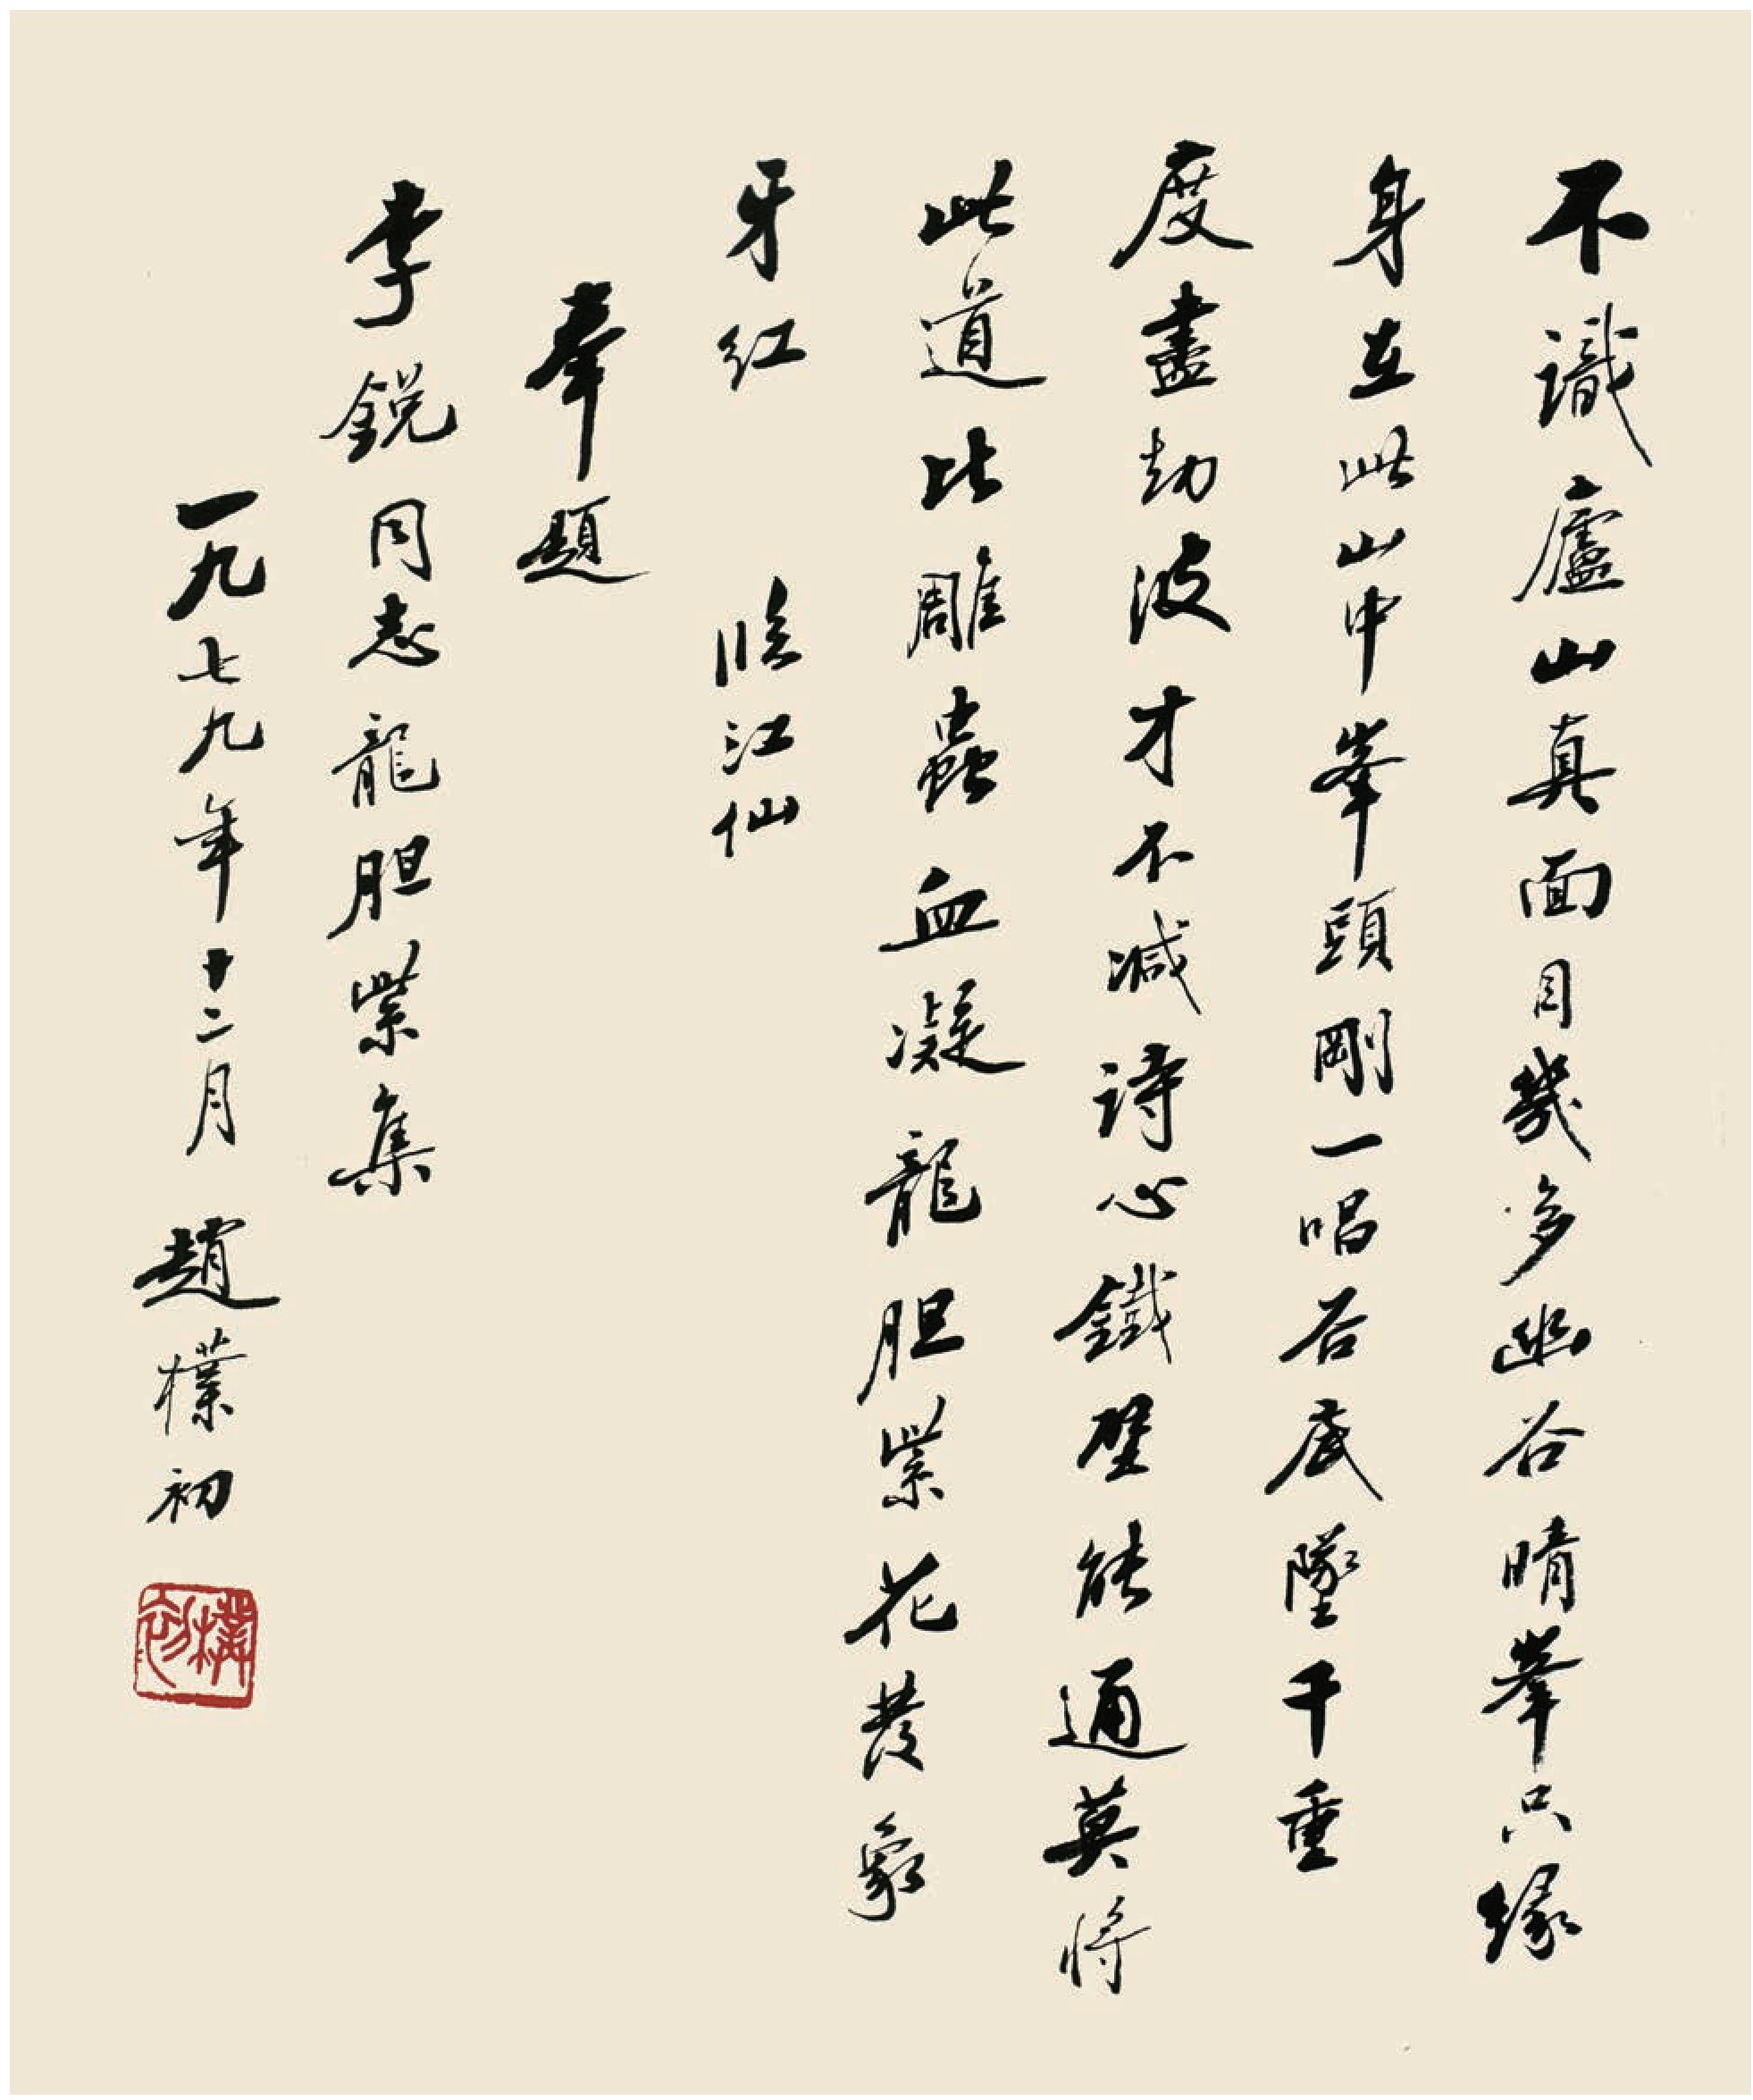 不識廬山真面目幾多幽谷晴峯只緣
身在此山中峯頭剛一唱谷底墜千重
度盡劫波才不減詩心鐵壁能通莫將
此道比雕蟲血凝龍胆紫花發象
牙紅 臨江仙
奉題
李銳同志龍胆紫集
一九七九年十二月 趙樸初
樸初